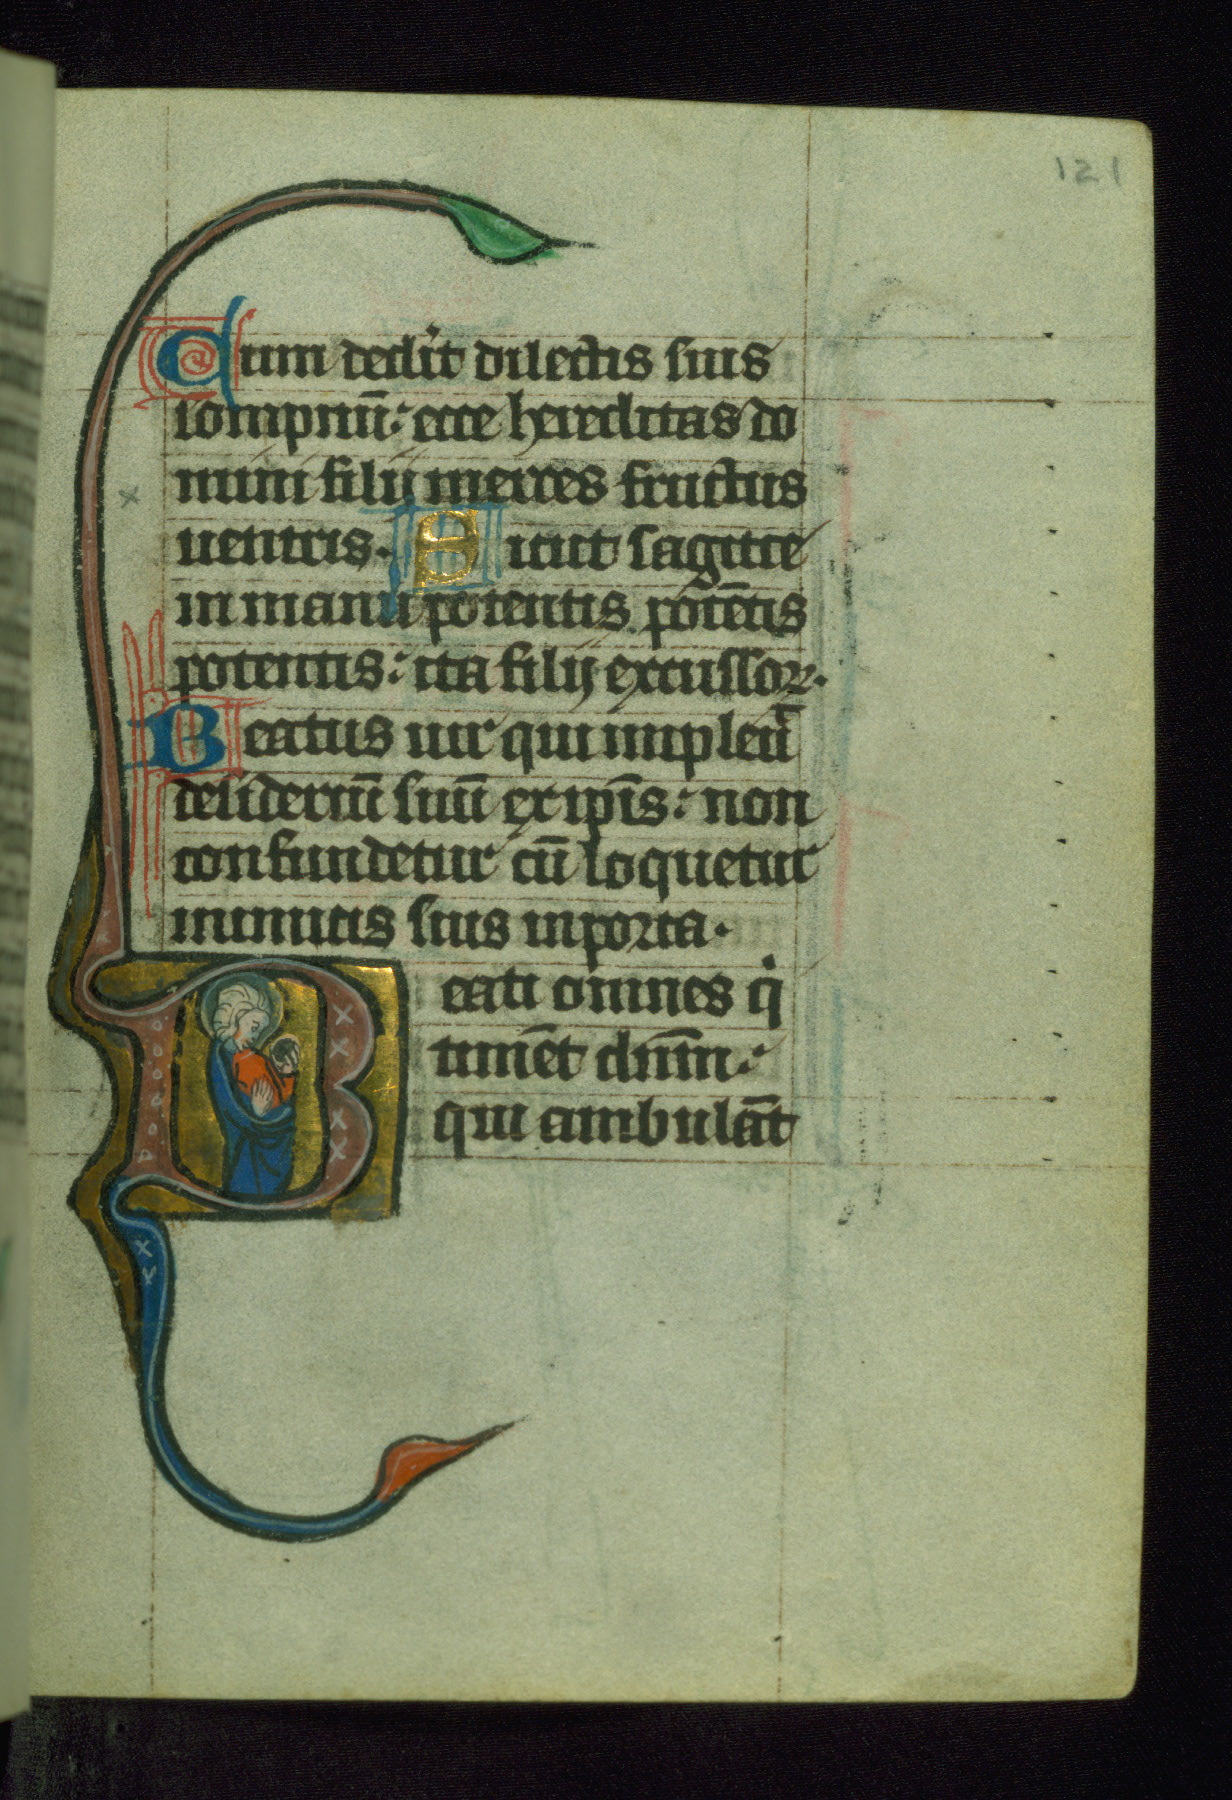 121
Cum dedit dilectis suis
sompnū: ecce hereditas do
mini filij merces fructus
uentris. Sicut sagitte
in manu potentis potētis
potentis: ita filij excussoꝝ.
Beatus uir qui impleuͣ
desideriū suū ex ipīs: non
confundetur cū loquetur
inimicis suis in porta.
Beati omnes qͥ
timēt dnm̄:
qui ambulāt